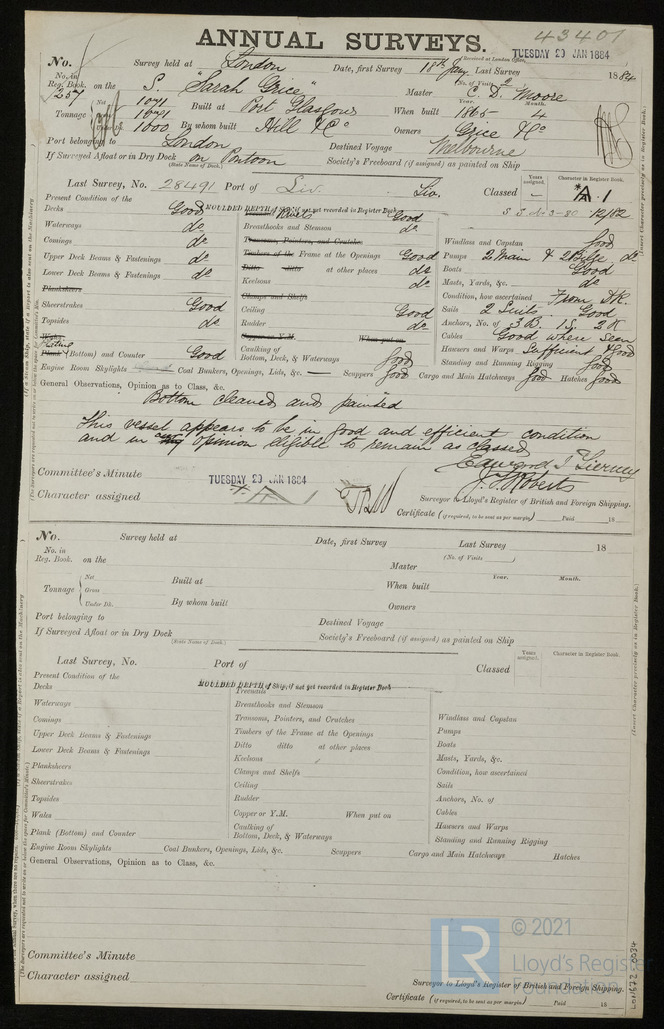 43401
ANNUAL SURVEYS.
TUESDAY 29 JAN 1884
Received at London Office,
No. Survey held at London Date, first Survey 18th Jany Last Survey 1884
No. in Reg. Book. 257 on the S. "Sarah Grice" (No. of Visits 2) Master C. D. Moore
Tonnage Net 1071 Gross 1091 Under Dk. 1000 Built at Port Glasgow When built Year. 1865 Month. 4
By whom built Hill & Co Owners Grice & Co
Port belonging to London Destined Voyage Melbourne
If Surveyed Afloat or in Dry Dock on Pontoon (State Name of Dock.) Society's Freeboard (if assigned) as painted on Ship
Last Survey, No. 28491 Port of Liv. Liv. Classed Years assigned. – Character in Register Book. A.1
S S No 3-80 12/82
Present Condition of the MOULDED DEPTH of Ship, if not yet recorded in Register Book
Decks Good Treenails Rivets Good
Waterways do Breasthooks and Stemson do
Comings do Transoms, Pointers, and Crutches Windlass and Capstan Good
Upper Deck Beams & Fastenings do Timbers of the Frame at the Openings Good Pumps 2 Main & 2 Bilge do
Lower Deck Beams & Fastenings do Ditto ditto at other places do Boats Good
Planksheers Keelsons do Masts, Yards, &c. do
Clamps and Shelfs Condition, how ascertained From Dk.
Sheerstrakes Good Ceiling Good Sails 2 Suits. Good
Topsides do Rudder do Anchors, No. of 3 B. 1 S. 2 K
Wales Copper or Y.M. When put on Cables Good where seen
Plating Plank (Bottom) and Counter Good Caulking of Bottom, Deck, & Waterways Good Hawsers and Warps Sufficient & Good
Standing and Running Rigging Good
Engine Room Skylights Coal Bunkers, Openings, Lids, &c. — Scuppers Good Cargo and Main Hatchways Good Hatches Good
General Observations, Opinion as to Class, &c.
Bottom cleaned and painted
This vessel appears to be in good and efficient condition
and in my opinion eligible to remain as classed
Edward J Tierney
J. S. Roberts
Committee's Minute TUESDAY 29 JAN 1884
Character assigned A 1
Surveyor to Lloyd's Register of British and Foreign Shipping.
Certificate (if required, to be sent as per margin) Paid 18
No. Survey held at Date, first Survey Last Survey 18
No. in Reg. Book. on the (No. of Visits ) Master
Tonnage Net Gross Under Dk. Built at When built Year. Month.
By whom built Owners
Port belonging to Destined Voyage
If Surveyed Afloat or in Dry Dock (State Name of Dock.) Society's Freeboard (if assigned) as painted on Ship
Last Survey, No. Port of Classed Years assigned. Character in Register Book.
Present Condition of the MOULDED DEPTH of Ship, if not yet recorded in Register Book
Decks Treenails
Waterways Breasthooks and Stemson
Comings Transoms, Pointers, and Crutches Windlass and Capstan
Upper Deck Beams & Fastenings Timbers of the Frame at the Openings Pumps
Lower Deck Beams & Fastenings Ditto ditto at other places Boats
Planksheers Keelsons Masts, Yards, &c.
Clamps and Shelfs Condition, how ascertained
Sheerstrakes Ceiling Sails
Topsides Rudder Anchors, No. of
Wales Copper or Y.M. When put on Cables
Plank (Bottom) and Counter Caulking of Bottom, Deck, & Waterways Hawsers and Warps
Standing and Running Rigging
Engine Room Skylights Coal Bunkers, Openings, Lids, &c. Scuppers Cargo and Main Hatchways Hatches
General Observations, Opinion as to Class, &c.
Committee's Minute
Character assigned
Surveyor to Lloyd's Register of British and Foreign Shipping.
Certificate (if required, to be sent as per margin) Paid 18
© 2021
LR
Lloyd's Register
Foundation